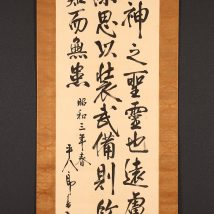 神之聖靈也遠慮
深思以装武備則
難而無患
昭和三年春